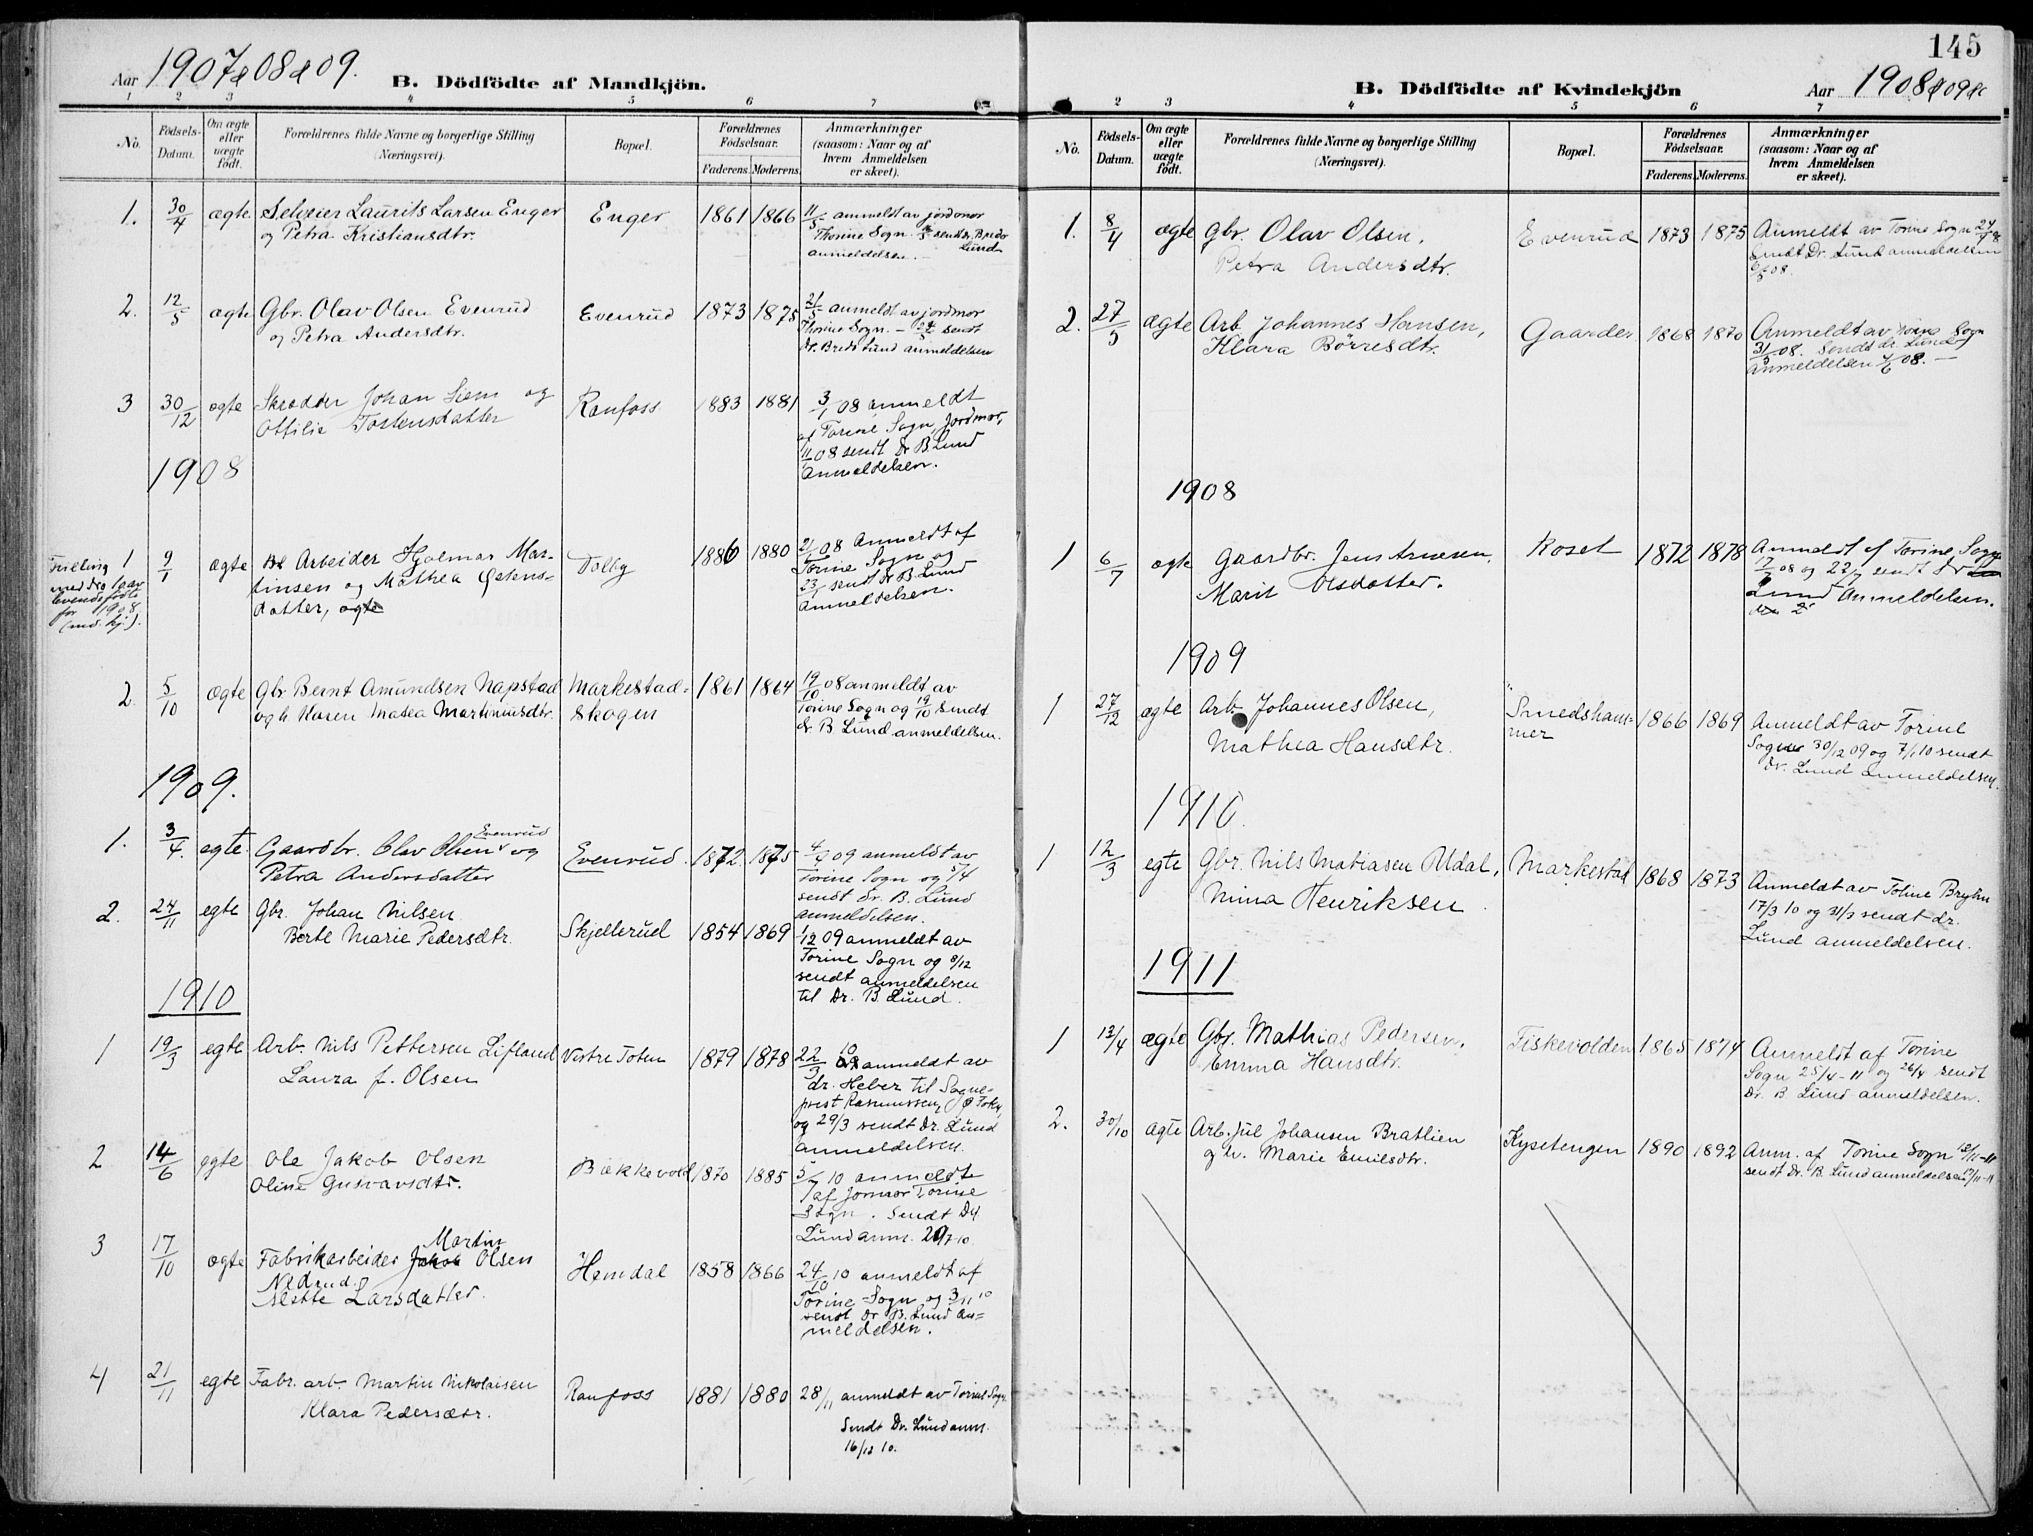 Aar 1907 & 08 & 09.
B. Dödfödte af Mandkjön.
1 2 3 4 5 6 7
No.
Födsels-
Datum.
Om ægte
eller
uægte
födt.
Forældrenes fulde Navne og borgerlige Stilling
(Næringsvei).
Bopæl.
Forældrenes
Födselsaar.
Faderens. Moderens.
Anmærkninger
(saasom: Naar og af
hvem Anmeldelsen
er skeet).
1. 30/4 ægte Selveier Laurits Larsen Enger Enger 1861 1866 11/5 anmeldt av jordmor
og Petra Kristiansdtr. Thorine Sogn. sendt Dr. Bredo
Lund
anmeldelsen. -
2. 12/5 ægte Gbr. Olav Olsen Evenrud Evenrud 1873 1875 21/5 anmeldt av jordmor
og Petra Andersdtr. Thorine Sogn. - sendt
Dr. Bredo Lund anmeldelsen
3 30/12 ægte Skrædder Johan Liem og Ranfoss 1883 1881 3/1 08 anmeldt
Ottilie Torstensdatter af Torine Sogn, Jordmor,
11/1 08 sendt Dr B. Lund
Anmeldelsen.
1908
Tvilling 1 9/1 ægte Arbeider Hjalmar Mar- Dalby 1886 1880 21/1 08 Anmeldt af
med No 1 av tinsen og Mathea Østens- Torine Sogn og
levendefødte datter, ægte 23/1 sendt dr B. Lund
for 1908 Anmeldelsen.
(md. kj.).
2. 5/10 ægte Gbr Bernt Amundsen Napstad Markestad- 1861 1864 19/10 08 anmeldt av
og h. Kasen Matea Martiniusdtr. skogen Torine Sogn og 19/10 sendt
dr B Lund anmeldelsen.
1909.
1. 3/4. egte. Gaardbr. Olav Olsen Evenrud og Evenrud. 1872 1875 4/4 09 anmeldt av
Petra Andersdatter Torine Sogn og 5/4
sendt dr. B. Lund
anmeldelsen.
2. 24/11 egte Gbr. Johan Nilsen Skjellerud 1854 1869 1/12 09 anmeldt av
Berte Marie Pedersdtr. Torine Sogn og 8/12
sendt anmeldelsen
til Dr. B. Lund.
1910
1 19/3 egte Arb. Nils Pettersen Lifland Vestre Toten 1879 1878 22/3 10 anmeldt av
Laura f. Olsen dr. Heber til Sogne-
prest Rasmussen, Ø Totn,
og 29/3 sendt Dr. Lund
anmeldelsen.
2 14/6 egte Ole Jakob Olsen Bækkevold 1870 1885 5/7 10 anmeldt
Oline Gustavsdtr. af Jormor Torine
Sogn. Sendt Dr
Lund anm. 29/7 10.
3 17/10 ægte Fabrikarbeider Jakob Martin Olsen Hemdal 1858 1866 24/10 10 anmeldt af
Nedrud.
Mette Larsdatter. Torine Sogn og 3/11 10
sendt Dr B. Lund An-
meldelsen.
4 21/11 egte Fabr. arb. Martin Nikolaisen Ranfoss 1881 1880 28/11 anmeldt av Torine Sogn
Klara Pedersdtr. Sendt Dr. Lund anm.
16/12 10.
145
B. Dödfödte af Kvindekjön Aar 1908 & 09 &
2 3 4 5 6 7
No.
Födsels-
Datum.
Om ægte
eller
uægte
födt.
Forældrenes fulde Navne og borgerlige Stilling
(Næringsvei).
Bopæl.
Forældrenes
Födselsaar.
Faderens. Moderens.
Anmærkninger
(saasom: Naar og af
hvem Anmeldelsen
er skeet).
1. 8/4 ægte Gbr. Olav Olsen, Evenrud 1873 1875 Anmeldt av Torine Sogn
Petra Andersdtr. Sendt Dr. Lund anmeldelsen
08.
2. 27/5 ægte Arb Johannes Hansen, Gaarder 1868 1870 Anmeldt av Torine Sogn
Klara Børresdtr. 31/5 08. Sendt dr Lund
anmeldelsen 08. -
1908
1 6/7 ægte Gaardbr. Jens Arnesen, Roset 1872 1878 Anmeldt af Torine Sogn
Marit Olsdatter. 17/7 08 og 22/7 sendt Dr
Lund Anmeldelsen.
1909
1 27/12 ægte Arb. Johannes Olsen, Smedsham- 1866 1869 Anmeldt av Torine
Mathea Hansdtr. mer Sogn 30/12 09 og 7/1 10 sendt
Dr. Lund anmeldelsen
1910.
1 12/3 egte Gbr. Nils Matiasen Udal, Markestad 1868 1873 Anmeldt av Toline Bryhn
Mina Henriksen 17/3 10 og 31/3 sendt dr.
Lund anmeldelsen.
1911
1 13/4 ægte Gbr. Mathias Pedersen, Fiskevolden 1865 1874 Anmeldt af Torine
Emma Hansdtr. Sogn 25/4-11 og 26/4 sendt
Dr. B Lund anmeldelsen.
2. 30/10 ægte Arb. Jul Johansen Bratlien Kysetengen 1890 1892 Anm. af Torine Sogn
og h. Marie Emilsdtr. sendt Dr. B. Lund anmeldelsen